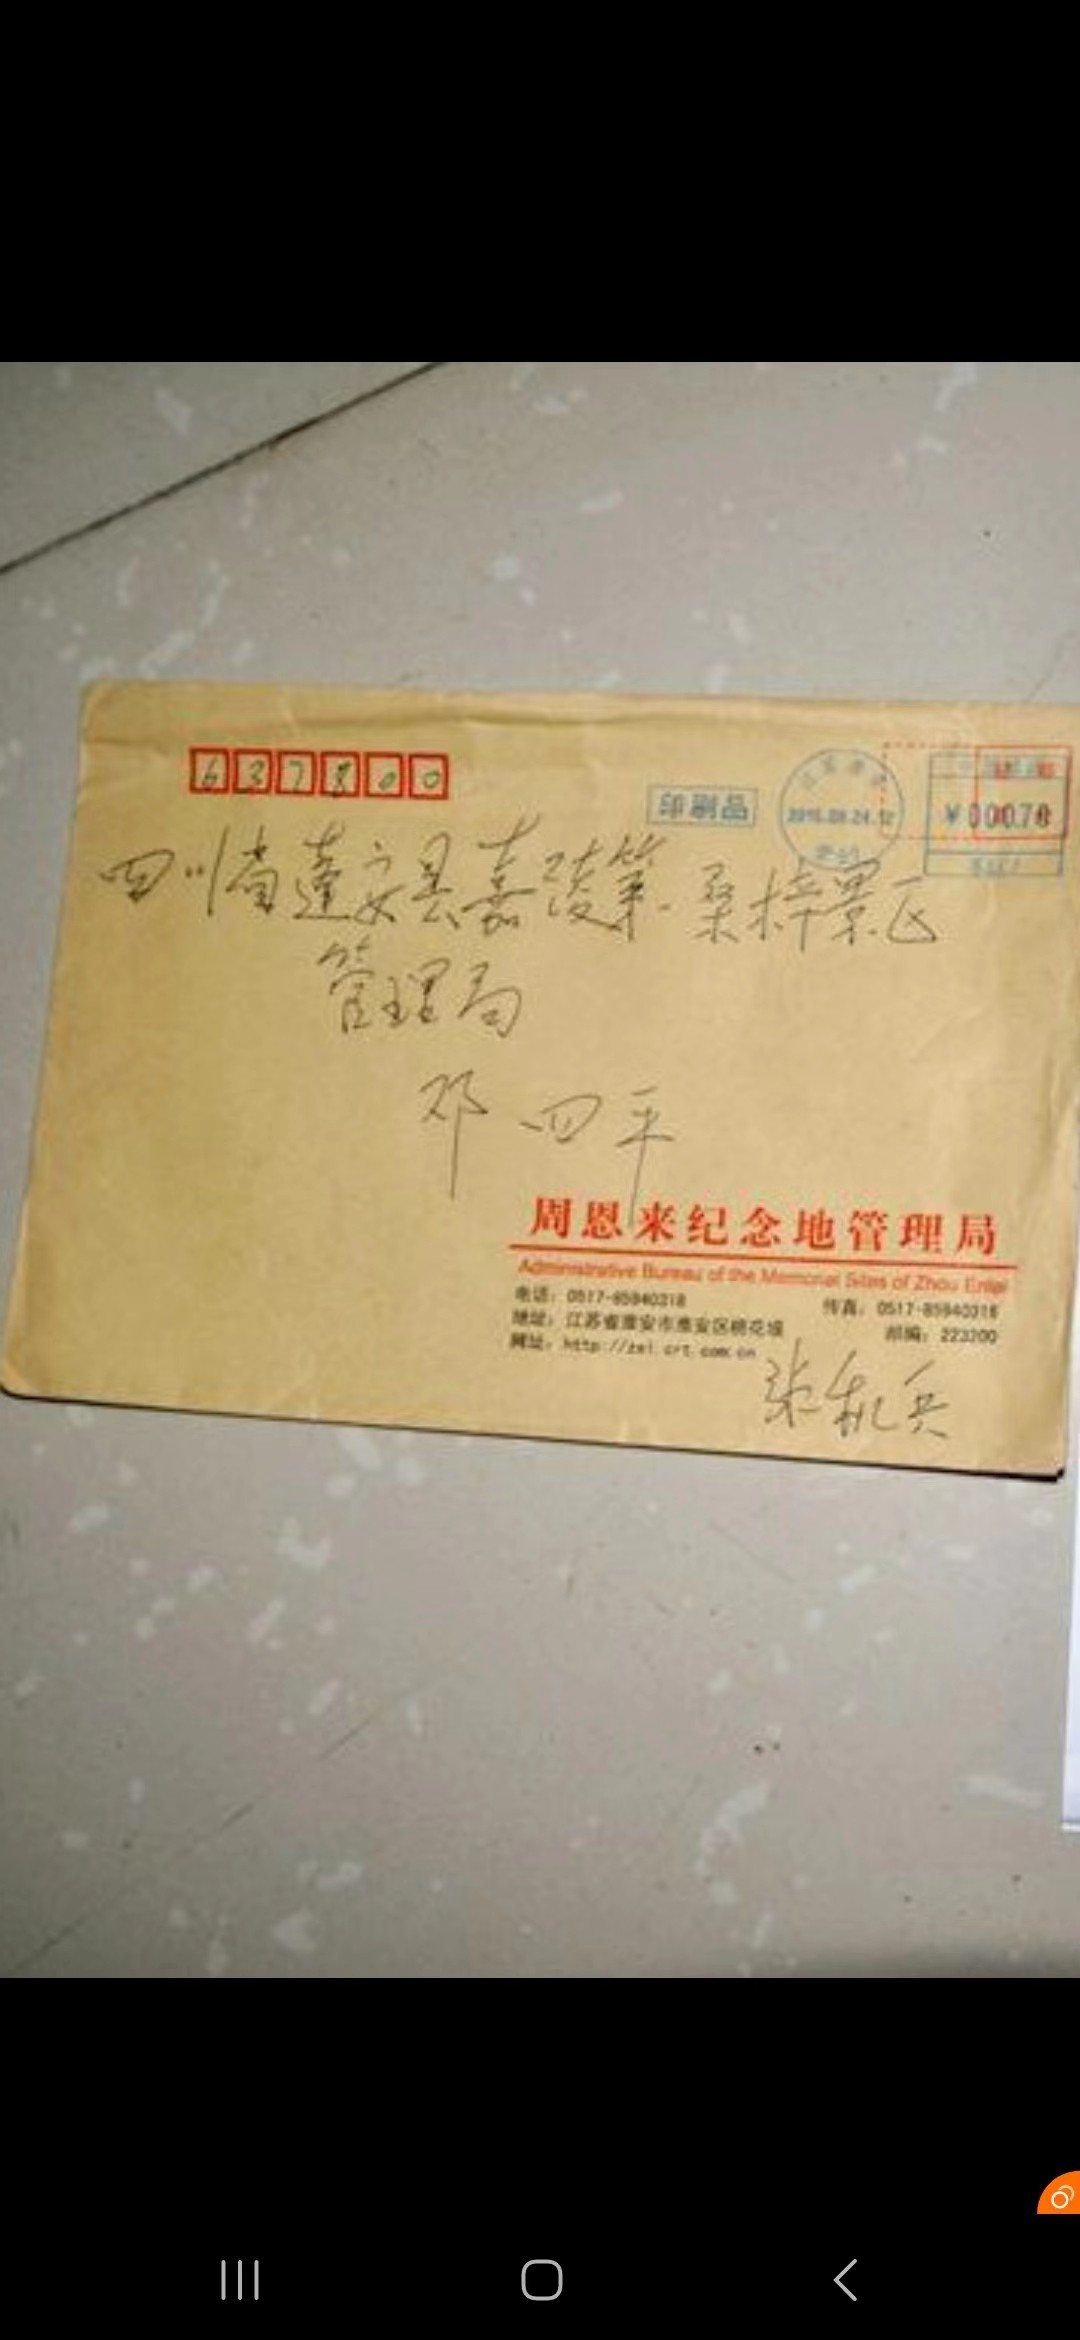 637800
印刷品
¥00070
四川省蓬安县嘉陵第一桑梓景区
管理局
邓四平
周恩来纪念地管理局
Administrative Bureau of the Memorial Sites of Zhou Enlai
电话：0517-85940318 传真：0517-85940318
地址：江苏省淮安市淮安区桃花垠 邮编：223200
网址：http://zel.crt.com.cn
张
兵